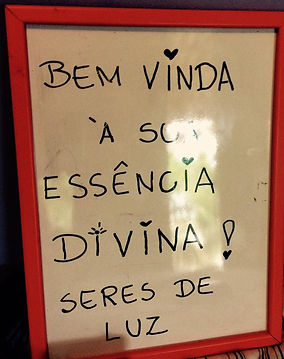 BEM VINDA
À SUA
ESSÊNCIA
DIVINA!
SERES DE
LUZ